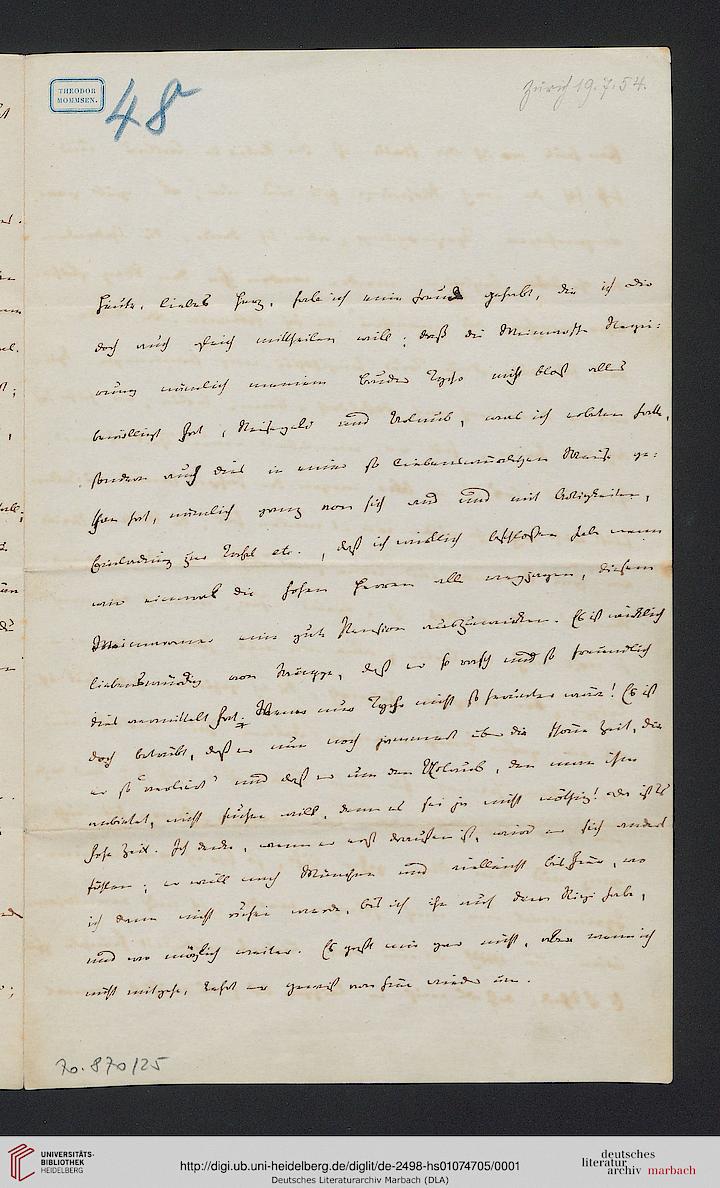 THEODOR
MOMMSEN.
48
Zürich 19.7.54.
Heute, liebes Herz, habe ich eine Freude gehabt, die ich Dir
doch auch gleich mittheilen will; daß die Weimarsche Regie-
rung nämlich meinem Bruder Tycho nicht bloß alles
bewilligt hat, Reisegeld und Urlaub, was ich erbeten hatte,
sondern auch dies in einer so liebenswürdigen Weise ge-
than hat, nämlich ganz von sich aus und mit Artigkeiten,
Einladung zur Tafel etc., daß ich endlich beschlossen habe wenn
wir einmal die hohen Herren alle wegjagen, diesem
Weimaraner eine gute Pension auszuwirken. Es ist wirklich
liebenswürdig von, daß er so rasch und so freundlich
dies vermittelt hat. Wenn nur Tycho nicht so herunter wäre! Es ist
doch betrübt, daß er nun noch jammert über die Zeit, die
er so "verliert" und daß er um den Urlaub, den man ihm
anbietet, nicht suchen will, denn es sei ja nicht nöthig! oder ist es
hohe Zeit. Ich denke, wenn er erst draußen ist, wird er sich anders
fühlen; er will nach München und vielleicht bis hier, wo
ich dann nicht ruhen werde, bis ich ihn auf dem Rigi habe,
und wo möglich weiter. Es paßt mir gar nicht, aber wenn ich
nicht mitgehe, kehrt er gewiß von hier wieder um.
70.870/25
UNIVERSITÄTS-
BIBLIOTHEK
HEIDELBERG
http://digi.ub.uni-heidelberg.de/diglit/de-2498-hs01074705/0001
Deutsches Literaturarchiv Marbach (DLA)
deutsches
literatur
archiv marbach